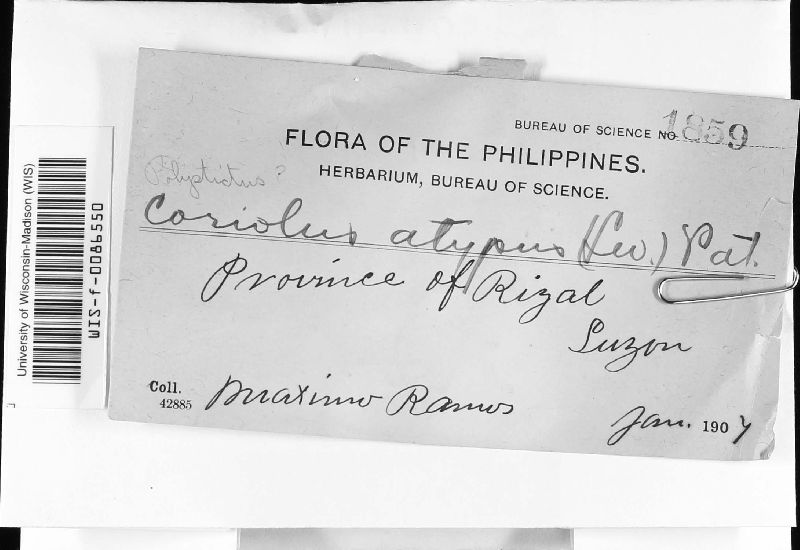 BUREAU OF SCIENCE NO. 1859
FLORA OF THE PHILIPPINES.
HERBARIUM, BUREAU OF SCIENCE.
Polystictus?
Coriolus atypus (Lev.) Pat.
Province of Rizal
Luzon
Coll. Maximo Ramos
42885
Jan. 1907
University of Wisconsin-Madison (WIS)
WIS-f-0086550